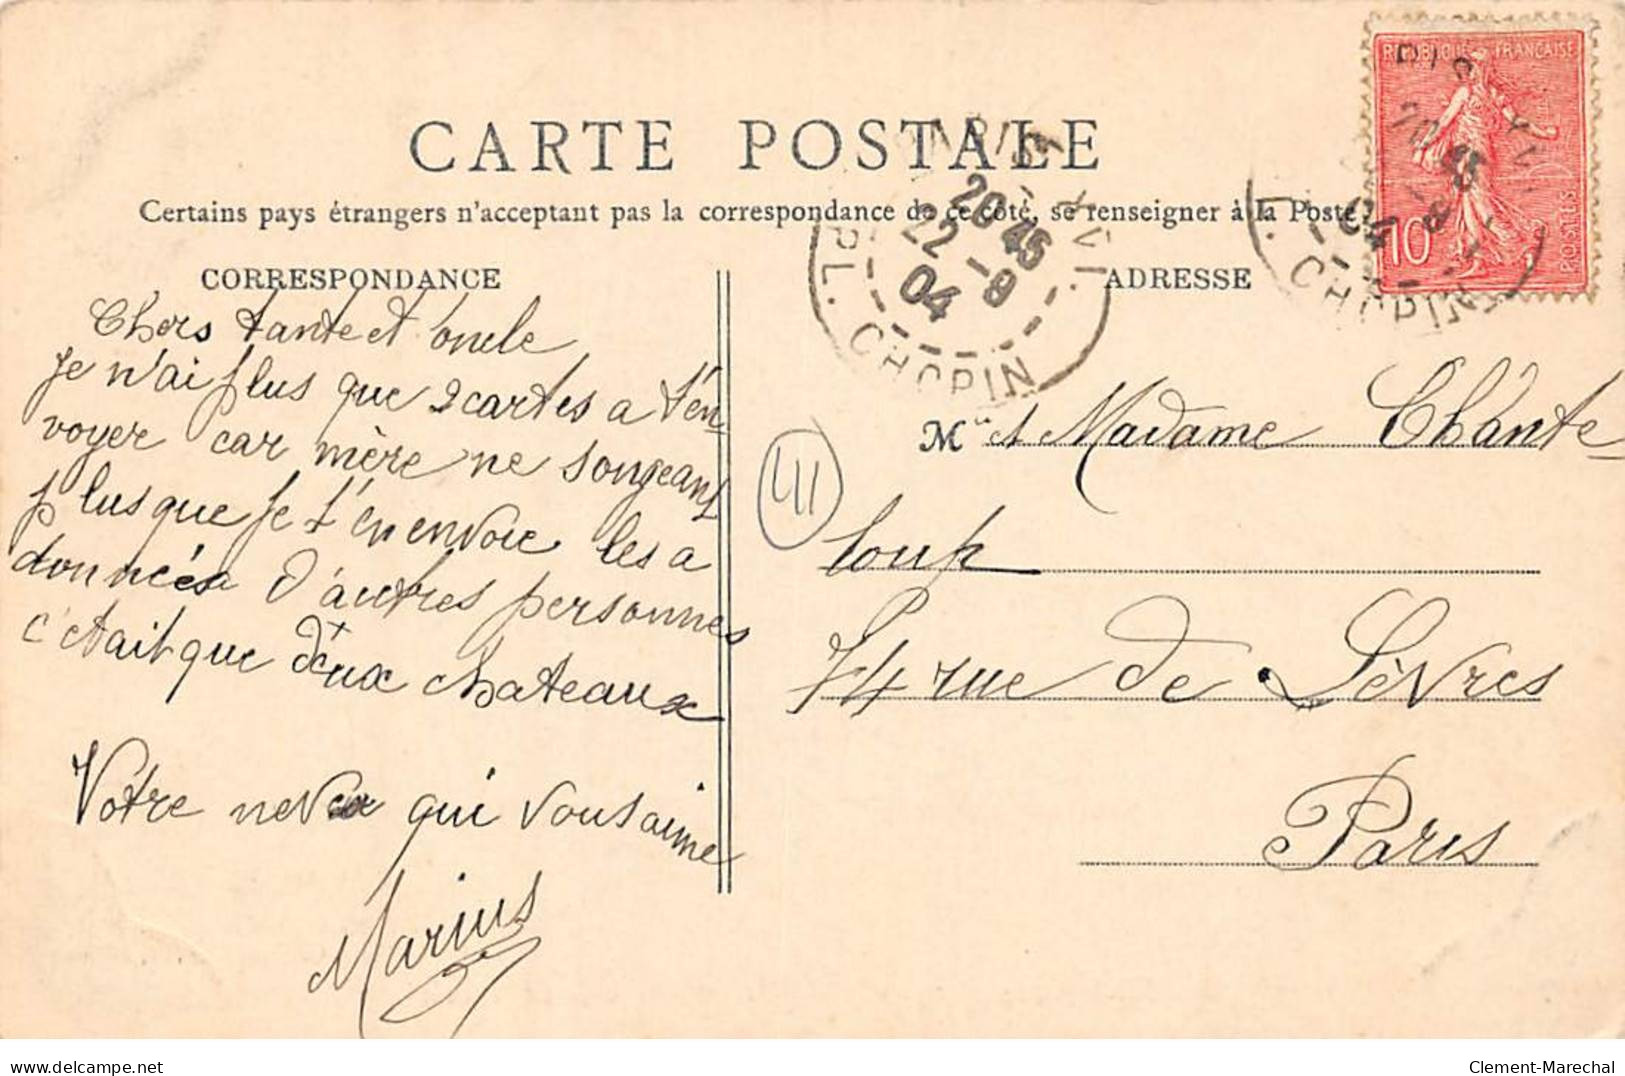 RÉPUBLIQUE FRANÇAISE
10
POSTES
CARTE POSTALE
Certains pays étrangers n'acceptent pas la correspondance de ce côté, se renseigner à la Poste
CORRESPONDANCE
Chers tante et oncle
Je n'ai plus que 2 cartes a t'en
voyer car mère ne songeant
plus que je t'en envoie les a
données a d'autres personnes
c'etait que deux chateaux
Votre neveu qui vous aime
Marius
PARIS XVI
20 45
22 - 8
04
PL. CHOPIN
20 45
04
PL. CHOPIN
41
ADRESSE
M et Madame Chante
loup
74 rue de Sèvres
Paris
delcampe.net
Clement-Marechal